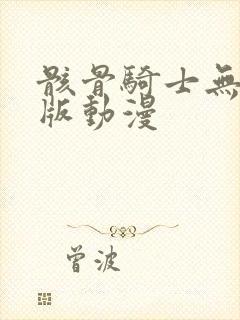 骸骨騎士無
版動漫
曾波